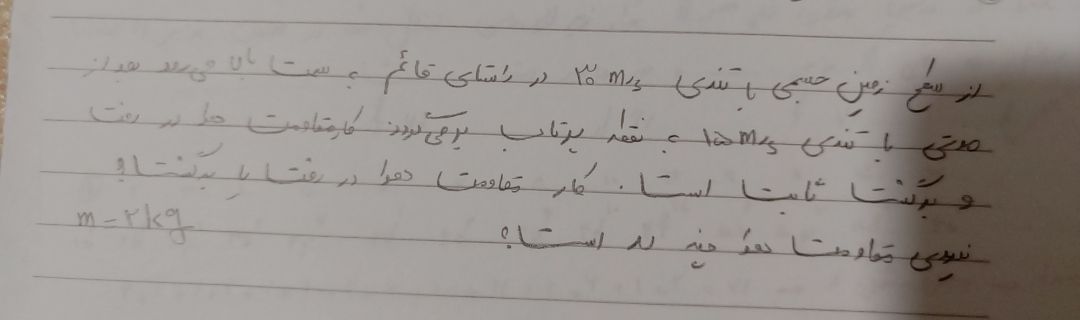 از سطح زمین جسمی با تندی ۳۰ m/s در راستای قائم به سمت بالا می‌رود بعد از
مدتی با تندی m/s به نقطه پرتاب برمی‌گردد کار مقاومت هوا در رفت
و برگشت ثابت است. کار مقاومت هوا در رفت یا برگشت؟
نیروی مقاومت هوا چند است؟ m=۲kg